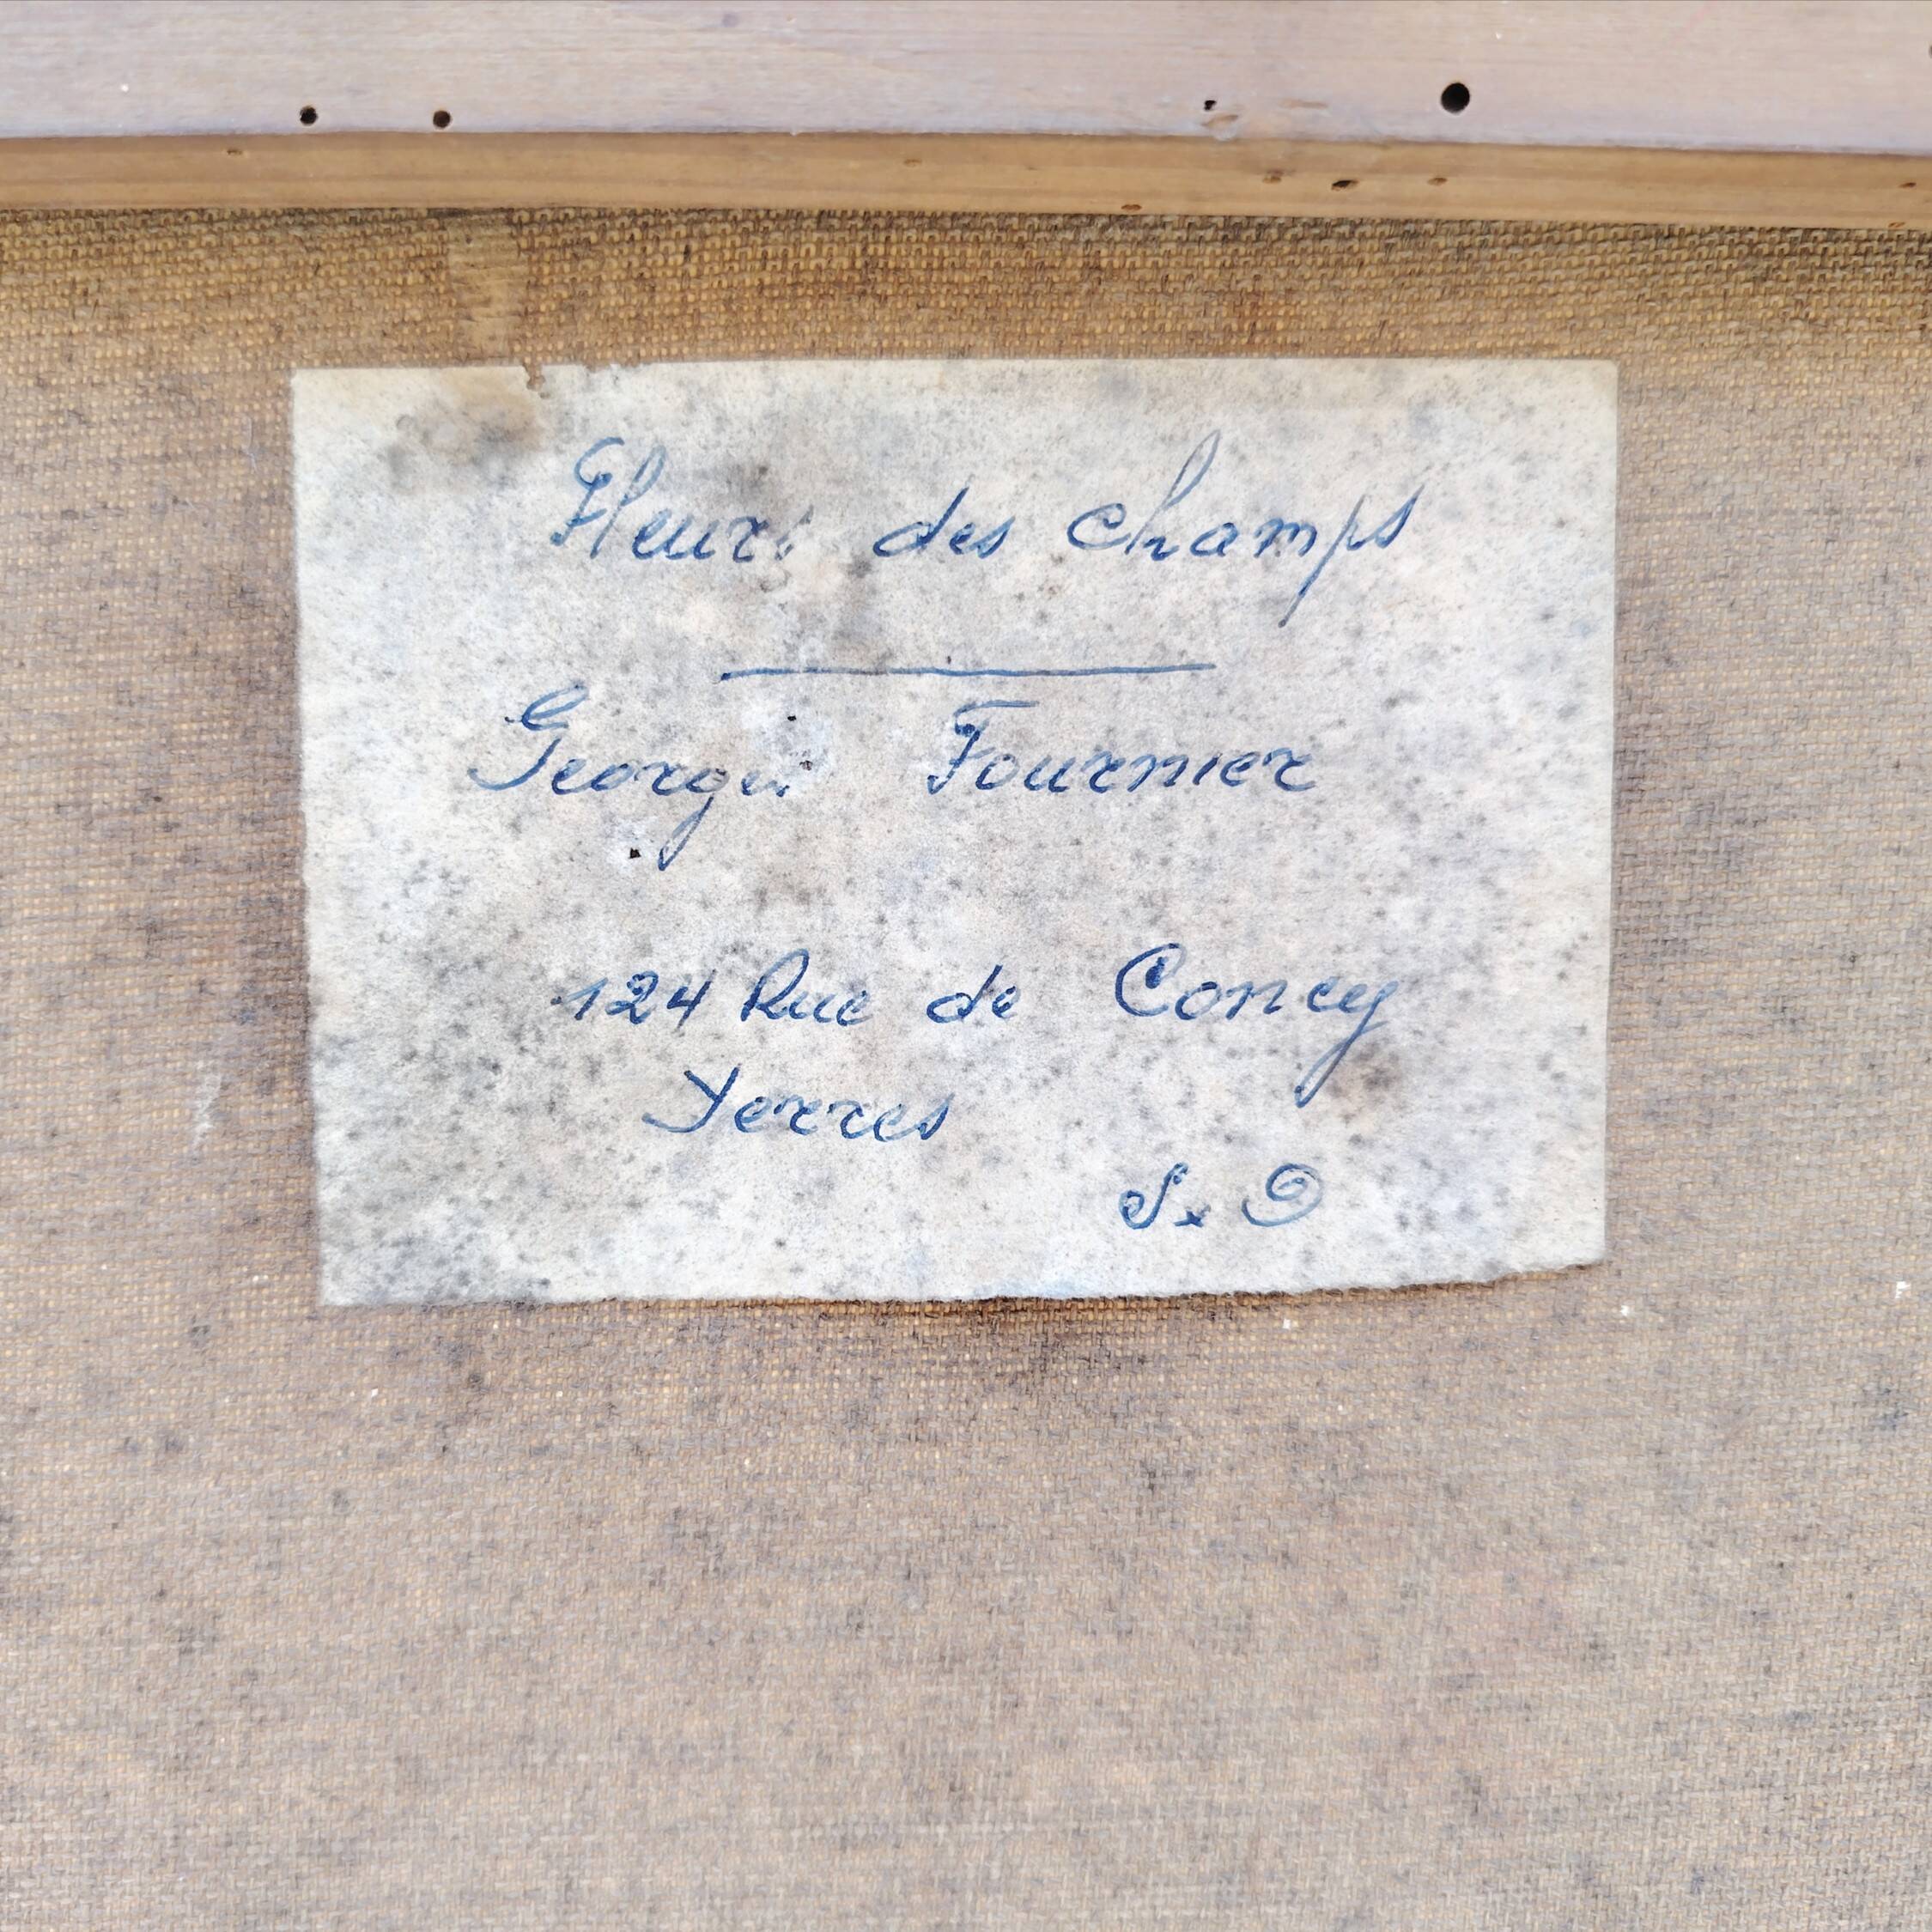 Fleurs des champs
Fournier
124 Rue de Concy
Yerres
S. & O